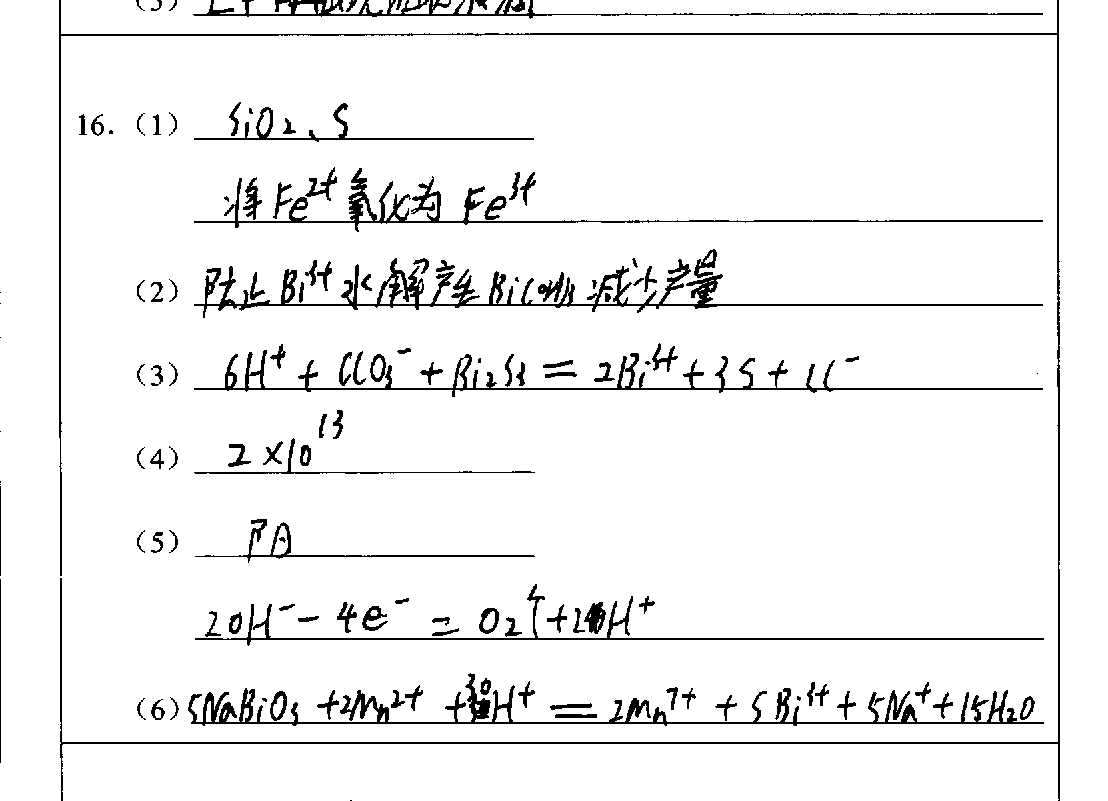 16.（1） SiO₂、S
将Fe²⁺氧化为Fe³⁺
（2） 防止Bi³⁺水解产生Bi(OH)₃减少产量
（3） 6H⁺ + ClO₃⁻ + Bi₂S₃ = 2Bi³⁺ + 3S + Cl⁻
（4） 2×10¹³
（5） 阳
2OH⁻ - 4e⁻ = O₂↑ + 2H⁺
（6） 5NaBiO₃ + 2Mn²⁺ + 30H⁺ = 2Mn⁷⁺ + 5Bi³⁺ + 5Na⁺ + 15H₂O